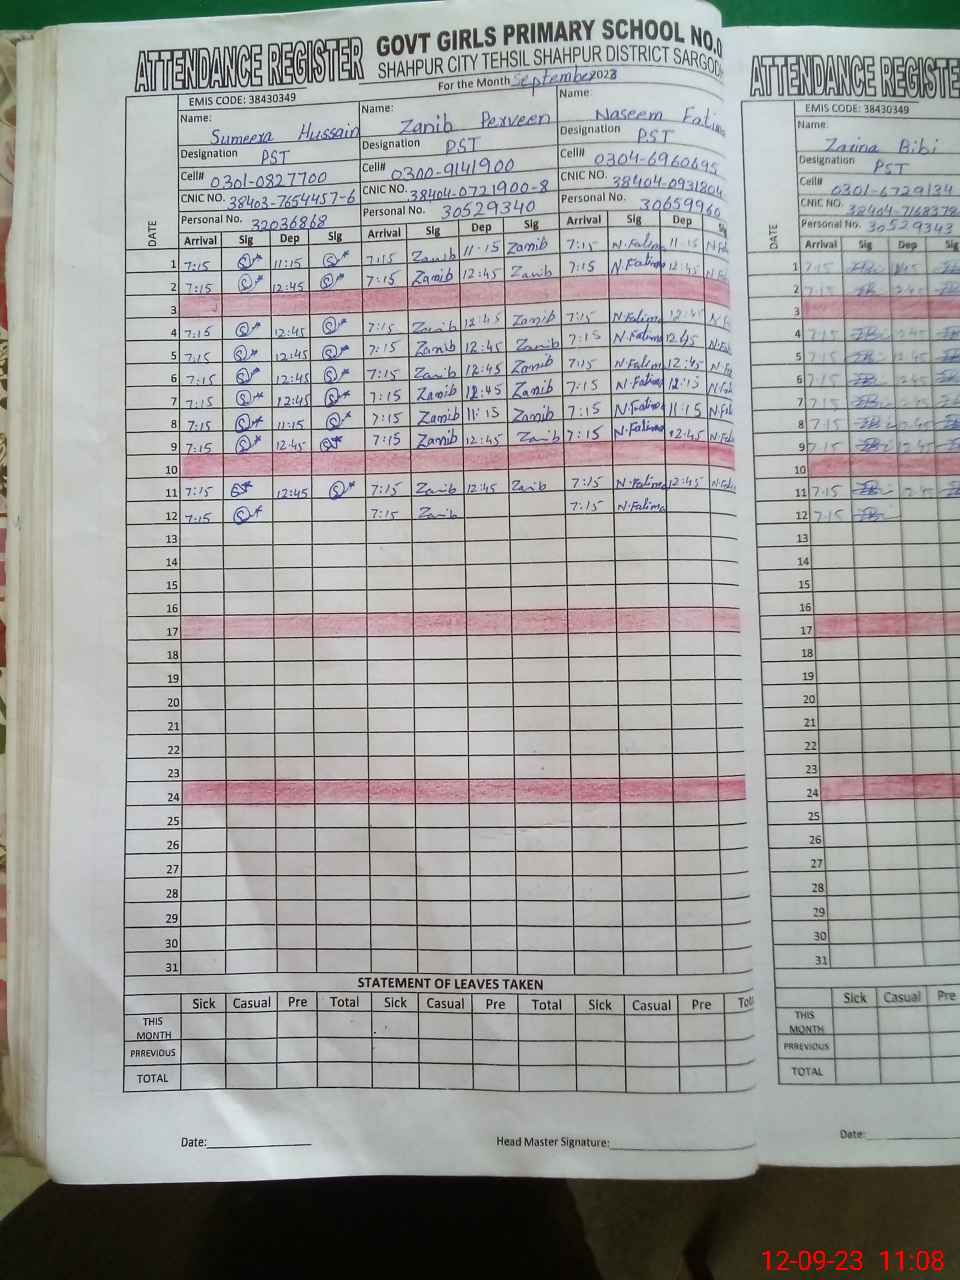 ATTENDANCE REGISTER GOVT GIRLS PRIMARY SCHOOL NO.
SHAHPUR CITY TEHSIL SHAHPUR DISTRICT SARGOD
For the Month September 2023
EMIS CODE: 38430349
Name: Sumeera Hussain Name: Zanib Perveen Name: Naseem Fatima
Designation PST Designation PST Designation PST
Cell# 0301-0827700 Cell# 0300-9141900 Cell# 0304-6960695
CNIC NO. 38403-7654457-6 CNIC NO. 38404-0721900-8 CNIC NO. 38404-0931804
Personal No. 32036868 Personal No. 30529340 Personal No. 30659960
DATE Arrival Sig Dep Sig Arrival Sig Dep Sig Arrival Sig Dep Sig
1 7:15 11:15 7:15 Zanib 11:15 Zanib 7:15 N.Fatima 11:15 N.Fa
2 7:15 12:45 7:15 Zanib 12:45 Zanib 7:15 N.Fatima 12:45 N.Fa
3
4 7:15 12:45 7:15 Zanib 12:45 Zanib 7:15 N.Fatima 12:45 N.Fa
5 7:15 12:45 7:15 Zanib 12:45 Zanib 7:15 N.Fatima 12:45 N.Fa
6 7:15 12:45 7:15 Zanib 12:45 Zanib 7:15 N.Fatima 12:45 N.Fa
7 7:15 12:45 7:15 Zanib 12:45 Zanib 7:15 N.Fatima N.Fat
8 7:15 11:15 7:15 Zanib 11:15 Zanib 7:15 N.Fatima 11:15 N.Fat
9 7:15 12:45 7:15 Zanib 12:45 Zanib 7:15 N.Fatima 12:45 N.Fat
10
11 7:15 12:45 7:15 Zanib 12:45 Zanib 7:15 N.Fatima 12:45 N.Fat
12 7:15 7:15 Zanib 7:15 N.Fatima
13
14
15
16
17
18
19
20
21
22
23
24
25
26
27
28
29
30
31
STATEMENT OF LEAVES TAKEN
Sick Casual Pre Total Sick Casual Pre Total Sick Casual Pre Tot
THIS MONTH
PRREVIOUS
TOTAL
Date: Head Master Signature:
ATTENDANCE REGISTE
EMIS CODE: 38430349
Name: Zarina Bibi
Designation PST
Cell# 0301-6729134
CNIC NO. 38404-7168378
Personal No. 30529343
DATE Arrival Sig Dep Sig
1 7:15
2 7:15
3
4 7:15
5 7:15
6 7:15
7 7:15
8 7:15
9 7:15
10
11 7:15
12 7:15
13
14
15
16
17
18
19
20
21
22
23
24
25
26
27
28
29
30
31
Sick Casual Pre
THIS MONTH
PRREVIOUS
TOTAL
Date:
12-09-23 11:08